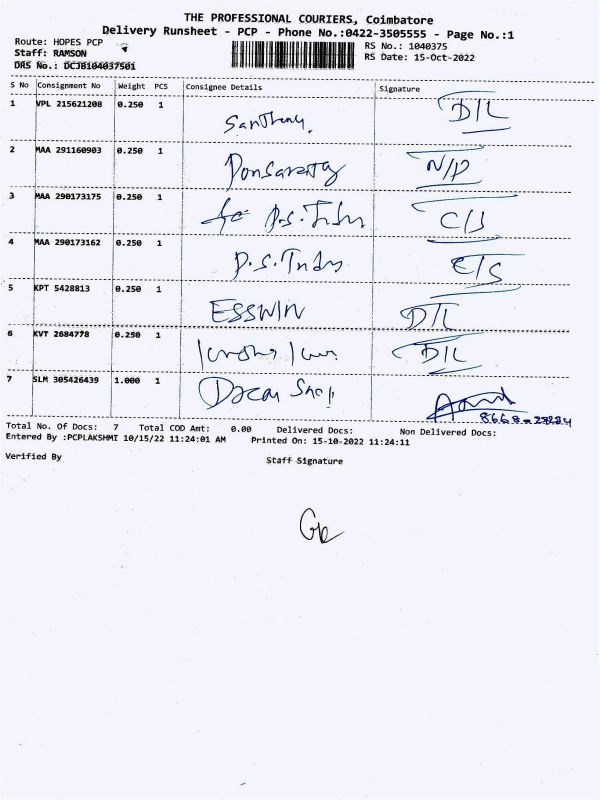 THE PROFESSIONAL COURIERS, Coimbatore
Delivery Runsheet - PCP - Phone No.:0422-3505555 - Page No.:1
Route: HOPES PCP
RS No.: 1040375
Staff: RAMSON
RS Date: 15-Oct-2022
DRS No.: DCJB104037501
S No Consignment No Weight PCS Consignee Details Signature
1 VPL 215621208 0.250 1 D/L
2 MAA 291160903 0.250 1 N/P
3 MAA 290173175 0.250 1 C/S
4 MAA 290173162 0.250 1 P.S. C/S
5 KPT 5428813 0.250 1 ESSWIN D/L
6 KVT 2684778 0.250 1 D/L
7 SLM 305426439 1.000 1
Total No. Of Docs: 7 Total COD Amt: 0.00 Delivered Docs: Non Delivered Docs:
Entered By :PCPLAKSHMI 10/15/22 11:24:01 AM Printed On: 15-10-2022 11:24:11
Verified By Staff Signature